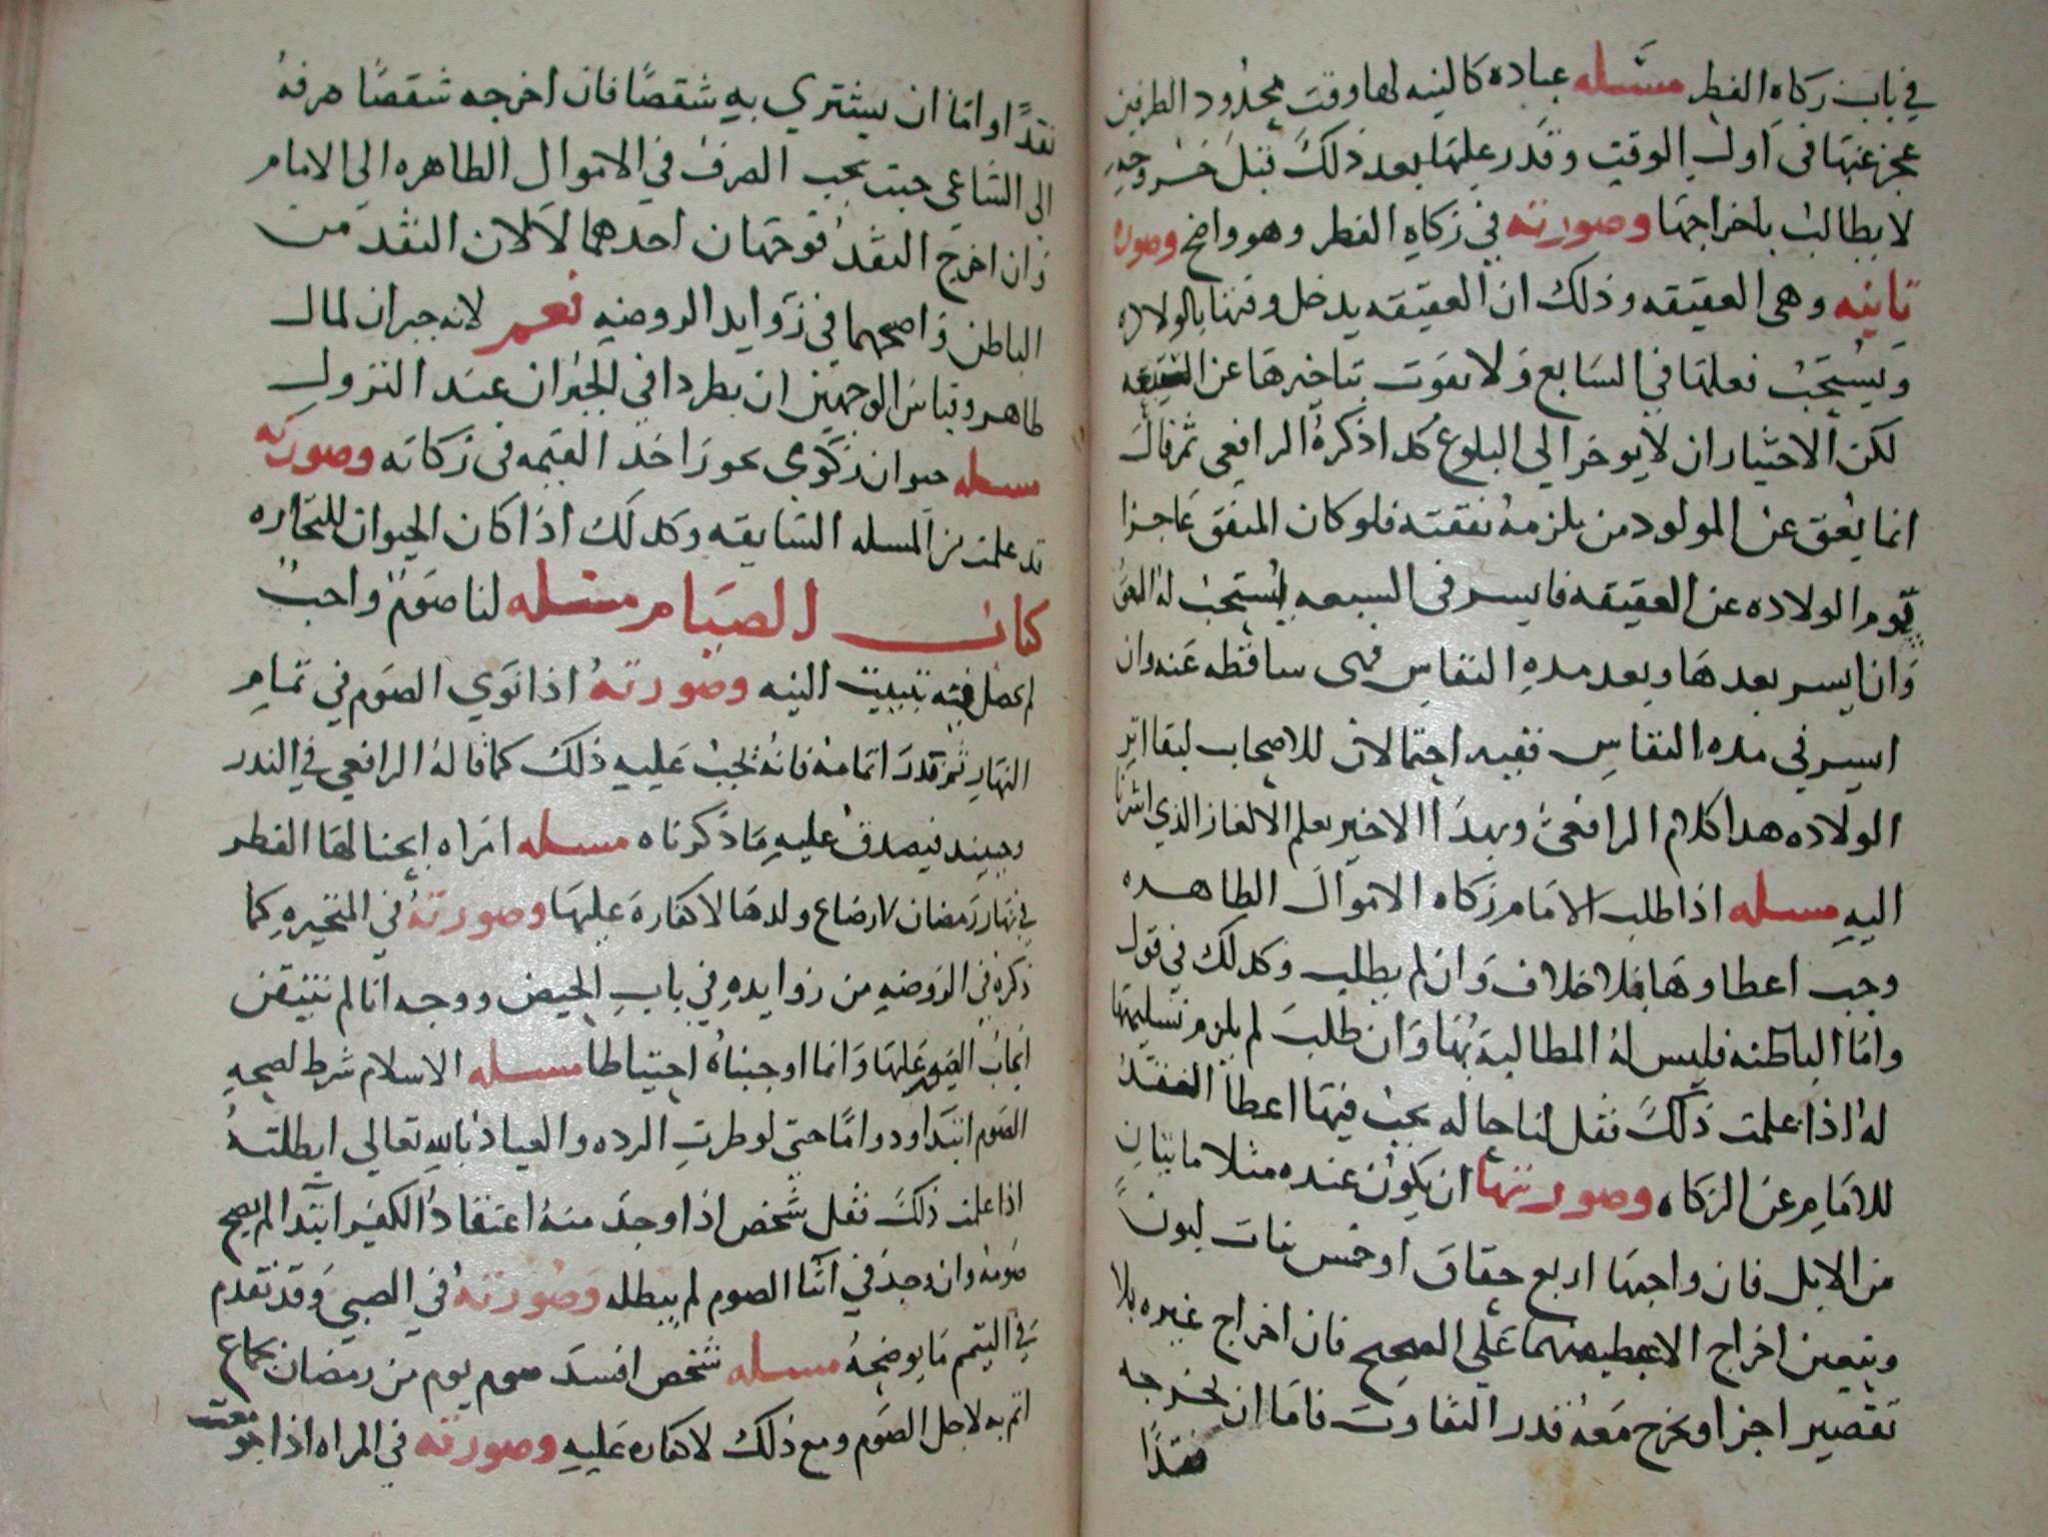 في باب زكاه الفطر مسئله عباده كالنيه لها وقت محدود الطرفين
عجز عنها في اول الوقت وقدر عليها بعد ذلك قبل خروجه
لا يطالب باخراجها وصورته في زكاه الفطر وهو واضح وصوره
ثانيه وهي العقيقه وذلك ان العقيقه يدخل وقتها بالولاده
ويستحب فعلها في السابع ولا تفوت بتاخيرها عن
لكن الاختيار ان لا يوخر الى البلوغ كذا ذكره الرافعي ثم قال
انما يعق عن المولود من يلزمه نفقته فلو كان المنفق عاجزا
يوم الولاده عن العقيقه فايسر في السبعه يستحب له العق
وان ايسر بعدها وبعد مده النفاس فهى ساقطه عنه وان
ايسر في مده النفاس ففيه احتمالان للاصحاب لبقا اثر
الولاده هدا كلام الرافعي وبهدا الاخير يعلم الالغاز الذي اشرنا
اليه مسله اذا طلب الامام زكاه الاموال الطاهره
وجب اعطاوها بلا خلاف وان لم يطلب وكدلك في قول
واما الباطنه فليس له المطالبة بها وان طلب لم يلزم تسليمها
له اذا علمت ذلك فقل لنا حاله يجب فيها اعطا النقد
للامام عن الزكاه وصورتها ان يكون عنده مثلا مايتان
من الابل فان واجبها اربع حقاق او خمس بنات لبون
ويتعين اخراج الاغبط منهما على الصحيح فان اخراج غيره بلا
تقصير اجزا ويخرج معه قدر التفاوت فاما ان يخرجه
نقدًا
نقدًا او اما ان يشتري به شقصًا فان اخرجه شقصًا صرفه
الى الساعي حيث يجب الصرف في الاموال الطاهره الى الامام
وان اخرج النقد فوجهان احدهما لا لان النقد من
الباطن واصحهما في زوايد الروضه نعم لانه جبران لمال
طاهر وقياس الوجهين ان يطردا في الجبران عند النزول
مسله حيوان زكوي يجوز اخذ القيمه في زكاته وصورته
قد علمت من المسله السابقه وكدلك اذا كان الحيوان للتجاره
كتاب الصيام مسله لنا صوم واجب
لم يحصل فيه تبييت النيه وصورته اذا نوي الصوم في تمام
النهار ثم قدر اتمامه فانه يجب عليه ذلك كما قاله الرافعي في الندر
وحينيد فيصدق عليه ما ذكرناه مسله امراه ابحنا لها الفطر
في نهار رمضان لارضاع ولدها لا كفاره عليها وصورته في المتحيره كما
ذكره في الروضه من زوايده في باب الحيض ووجه انا لم نتيقن
ايجاب الصوم عليها وانما اوجبناه احتياطا مسله الاسلام شرط لصحه
الصوم ابتدا ودواما حتى لو طرت الرده والعياذ بالله تعالى ابطلته
اذا علمت ذلك فقل شخص اذا وجد منه اعتقاد الكفر ابتدا لم يصح
صومه وان وجد في اثنا الصوم لم يبطله وصورته في الصبي وقد تقدم
في التيمم ما يوضحه مسله شخص افسد صوم يوم من رمضان بجماع
اثم به لاجل الصوم ومع ذلك لا كفاره عليه وصورته في المراه اذا جومعت